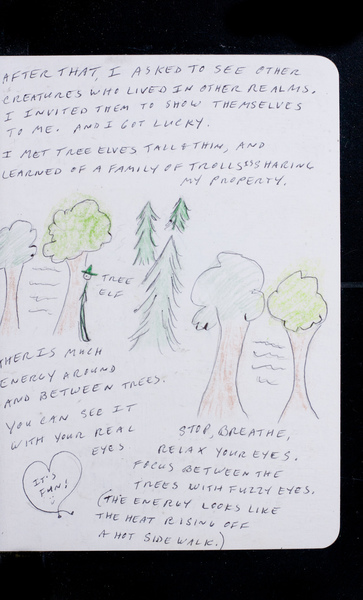 AFTER THAT, I ASKED TO SEE OTHER
CREATURES WHO LIVED IN OTHER REALMS.
I INVITED THEM TO SHOW THEMSELVES
TO ME. AND I GOT LUCKY.
I MET TREE ELVES TALL & THIN, AND
LEARNED OF A FAMILY OF TROLLS SHARING
MY PROPERTY.
TREE
ELF
THER IS MUCH
ENERGY AROUND
AND BETWEEN TREES.
YOU CAN SEE IT
WITH YOUR REAL
EYES
IT'S
FUN!
STOP, BREATHE,
RELAX YOUR EYES.
FOCUS BETWEEN THE
TREES WITH FUZZY EYES.
(THE ENERGY LOOKS LIKE
THE HEAT RISING OFF
A HOT SIDEWALK.)